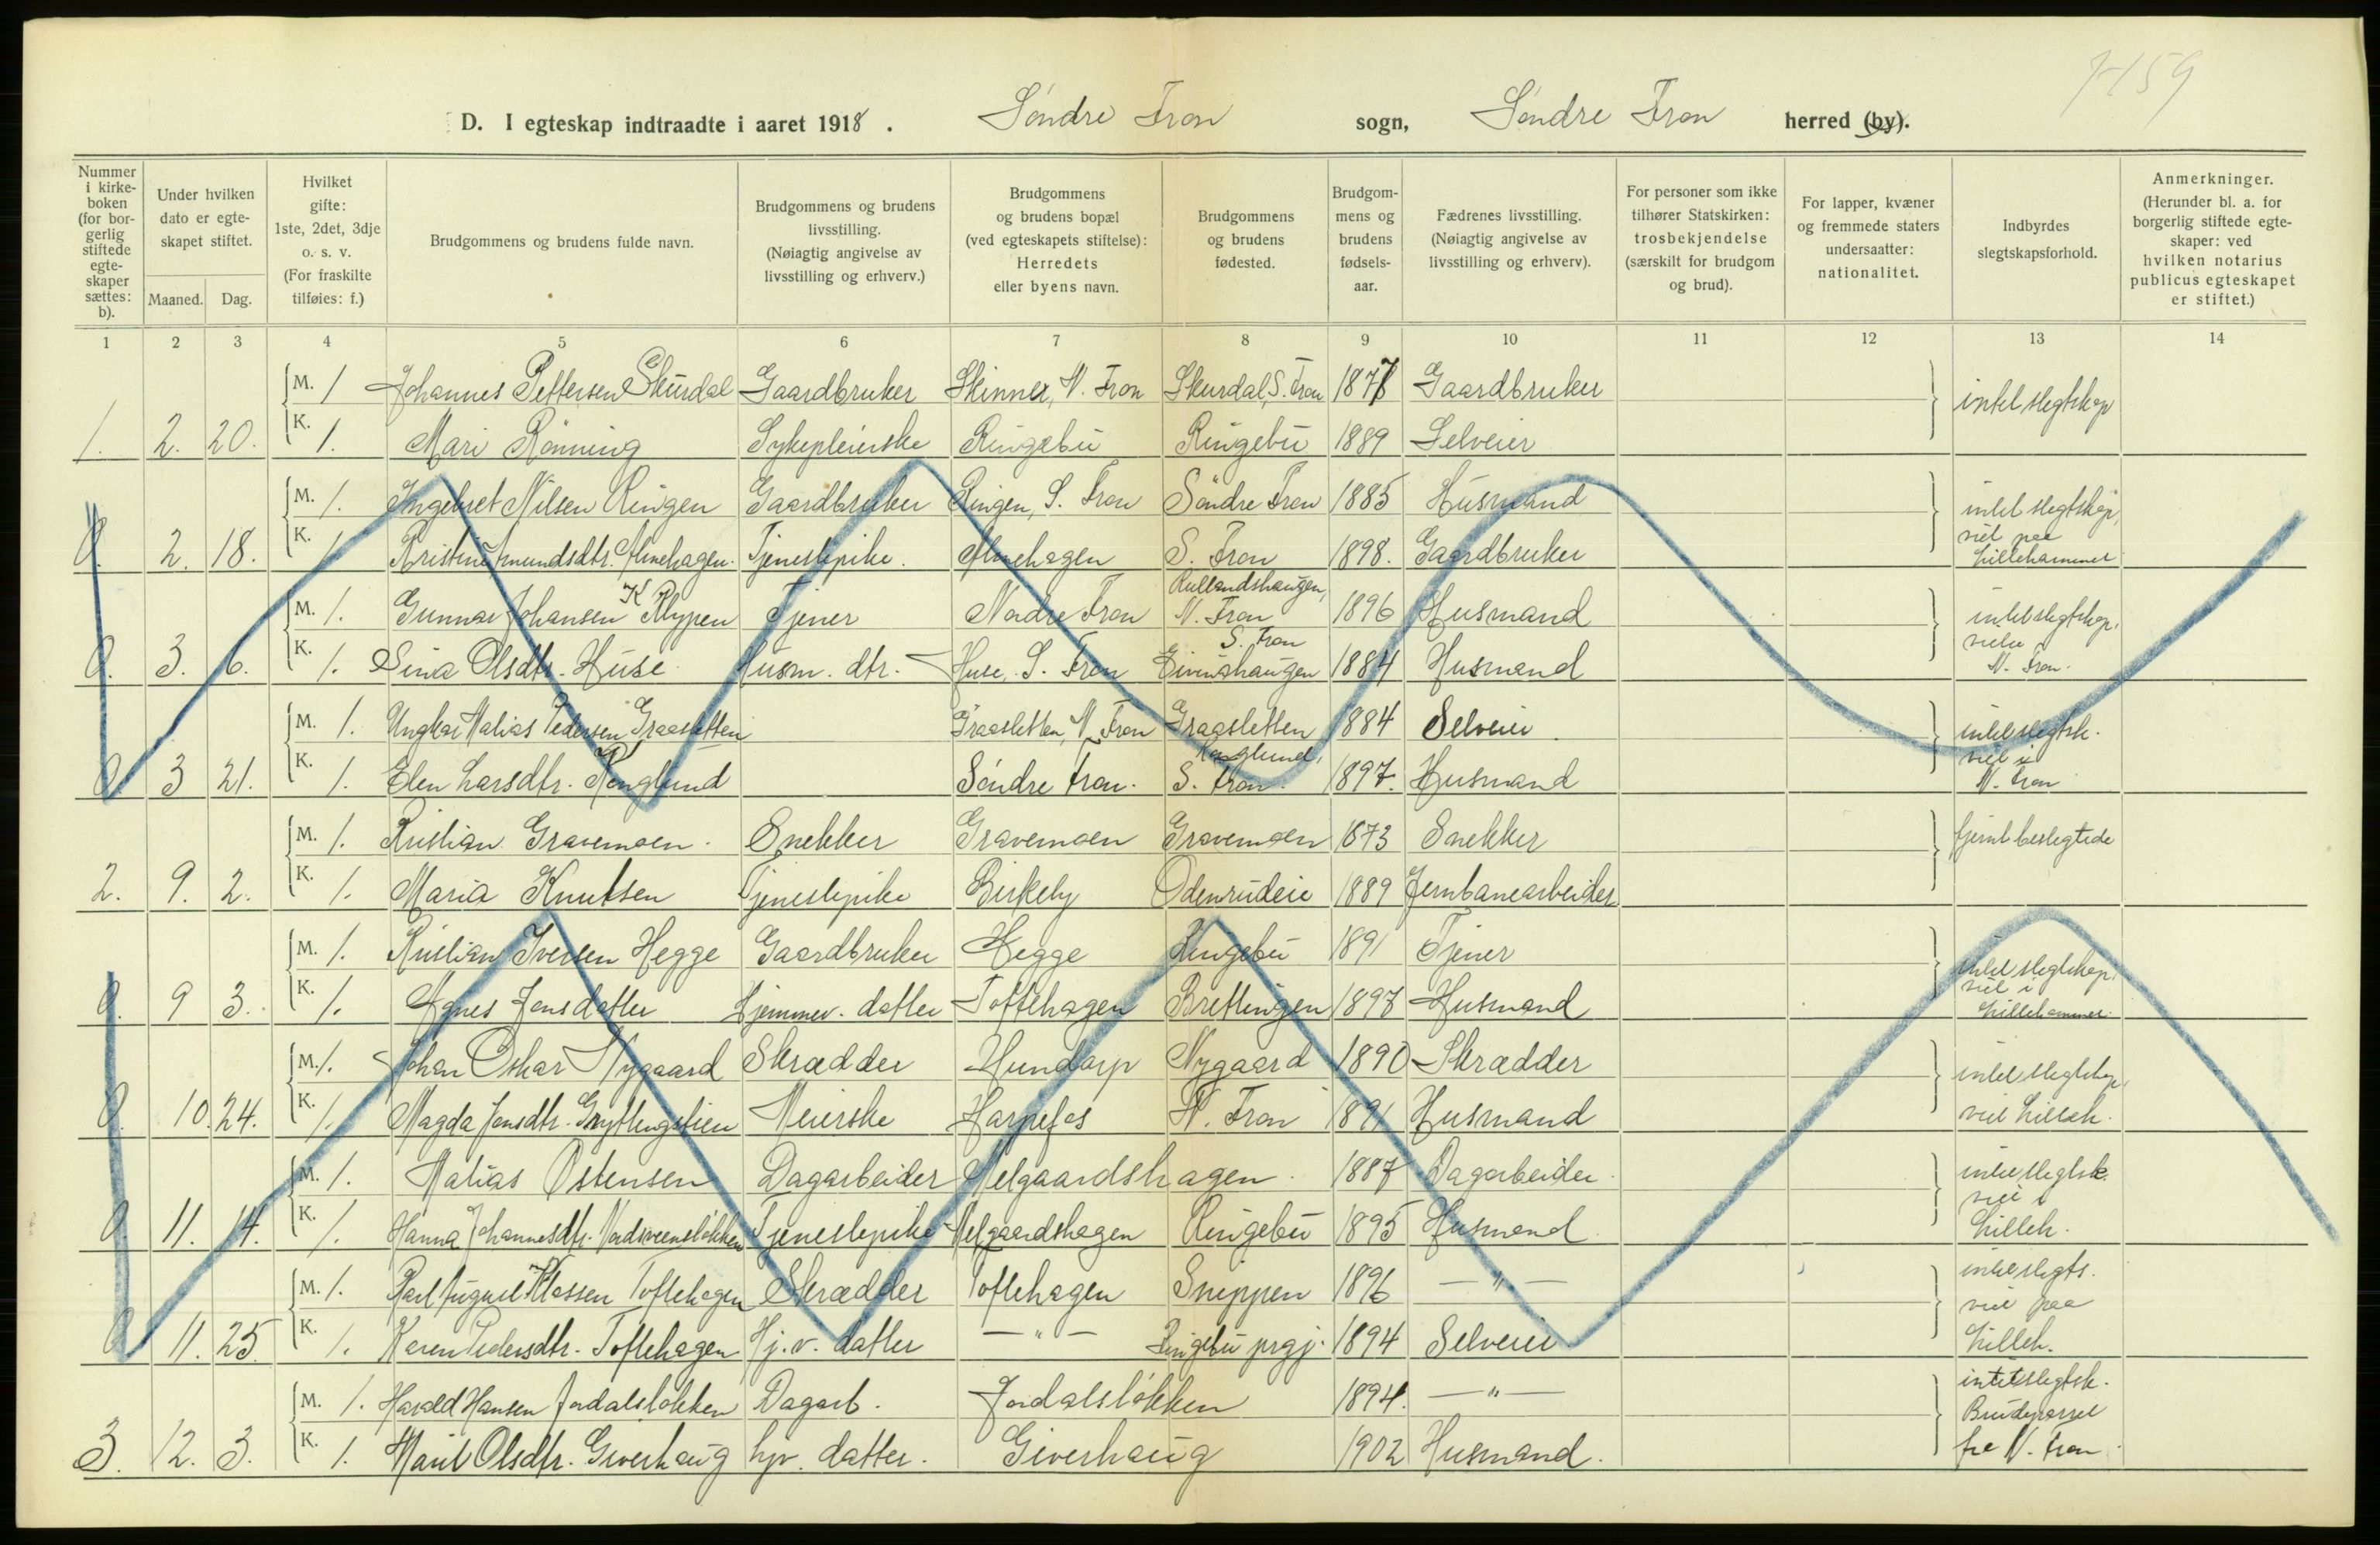 D. I egteskap indtraadte i aaret 1918. Söndre Fron sogn, Söndre Fron herred (by).
Nummer i kirke-boken (for bor-gerlig stiftede egte-skaper sættes: b).
Under hvilken dato er egte-skapet stiftet.
Maaned. Dag.
Hvilket gifte: 1ste, 2det, 3dje o. s. v. (For fraskilte tilføies: f.)
Brudgommens og brudens fulde navn.
Brudgommens og brudens livsstilling. (Nøiagtig angivelse av livsstilling og erhverv.)
Brudgommens og brudens bopæl (ved egteskapets stiftelse): Herredets eller byens navn.
Brudgommens og brudens fødested.
Brudgom-mens og brudens fødsels-aar.
Fædrenes livsstilling. (Nøiagtig angivelse av livsstilling og erhverv).
For personer som ikke tilhører Statskirken: trosbekjendelse (særskilt for brudgom og brud).
For lapper, kvæner og fremmede staters undersaatter: nationalitet.
Indbyrdes slegtskapsforhold.
Anmerkninger. (Herunder bl. a. for borgerlig stiftede egte-skaper: ved hvilken notarius publicus egteskapet er stiftet.)
1 2 3 4 5 6 7 8 9 10 11 12 13 14
M. 1 Johannes Pettersen Skurdal Gaardbruker Skinner, N. Fron Skurdal, S. Fron 1878 Gaardbruker intet slegtskap
1. 2. 20. K. 1. Mari Rönning Sykepleierske Ringebu Ringebu 1889 Selveier
M. 1. Ingebret Nilsen Ringen Gaardbruker Ringen, S. Fron Söndre Fron 1885 Husmand intet slegtskap,
0. 2. 18. K. 1. Kristine Amundsdtr. Almehagen. Tjenestepike. Almehagen S. Fron 1898. Gaardbruker viet paa Lillehammer
M. 1. Gunnar Johansen Klypen Tjener Nordre Fron Rullandshaugen, N. Fron 1896 Husmand intet slegtskap,
0. 3. 6. K. 1. Sina Olsdtr. Huse. Husm. dtr. Huse, S. Fron S. Fron Eivindhaugen 1884 Husmand N. Fron.
M. 1. Ungkar Matias Pedersen Graasletten Graasletten, N. Fron Graasletten 1884 Selveier. intet slegtsk.
0 3 21. K. 1. Elen Larsdtr. Kongslund Söndre Fron. S. Fron. 1897. Husmand viet i N. Fron
M. 1. Kristian Gravemoen. Snekker Gravemoen Gravemoen 1873 Snekker fjernt beslegtede
2. 9. 2. K. 1. Maria Knutsen Tjenestepike Birkely Odenrudeie 1889 Jernbanearbeider
M. 1. Kristian Iversen Hegge Gaardbruker Hegge Ringebu 1891 Tjener intet slegtskap,
0. 9 3. K. 1. Agnes Jensdatter Hjemmev. datter Toftehagen Brettingen 1897 Husmand viet i Lillehammer.
M. 1. Johan Oskar Nygaard Skrædder Hundorp Nygaard 1890 Skrædder intet slegtskap,
0. 10. 24. K. 1. Magda Jensdtr. Meierske Harpefos N. Fron 1891 Husmand viet Lilleh.
M. 1. Matias Östensen Dagarbeider Melgaardshagen. 1887 Dagarbeider. intet slegtsk.
0. 11. 14. K. 1. Hanna Johannesdtr. Tjenestepike Melgaardshagen Ringebu 1895 Husmand. viet i Lilleh.
M. 1. Karl August Klassen Toftehagen Skrædder Toftehagen Snippen 1896 — " — intet slegts.
0. 11. 25. K. 1. Karen Pedersdtr. Toftehagen Hj. v. datter — " — Ringebu prgj. 1894 Selveier viet paa Lilleh.
M. 1. Harald Hansen Jordalslökken Dagarb. Jordalslökken 1894. — " — intet slegtsk.
3. 12. 3. K. 1. Marit Olsdtr. Giverhaug hjv. datter. Giverhaug 1902 Husmand. fra N. Fron.